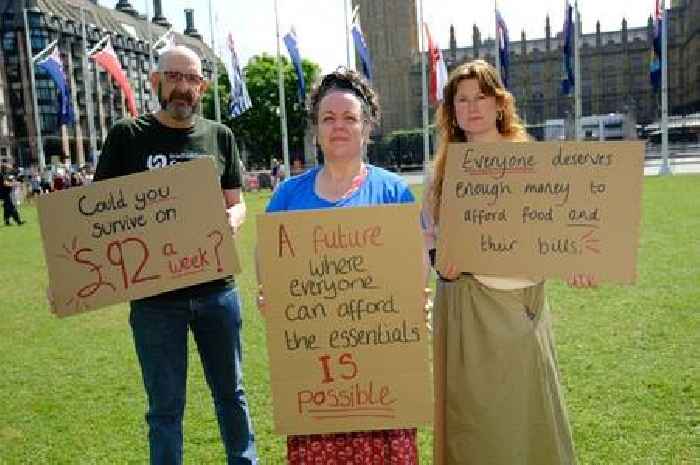 Could you
survive on
£92 a
week?
A future
where
everyone
can afford
the essentials
IS
possible
Everyone deserves
enough money to
afford food and
their bills.